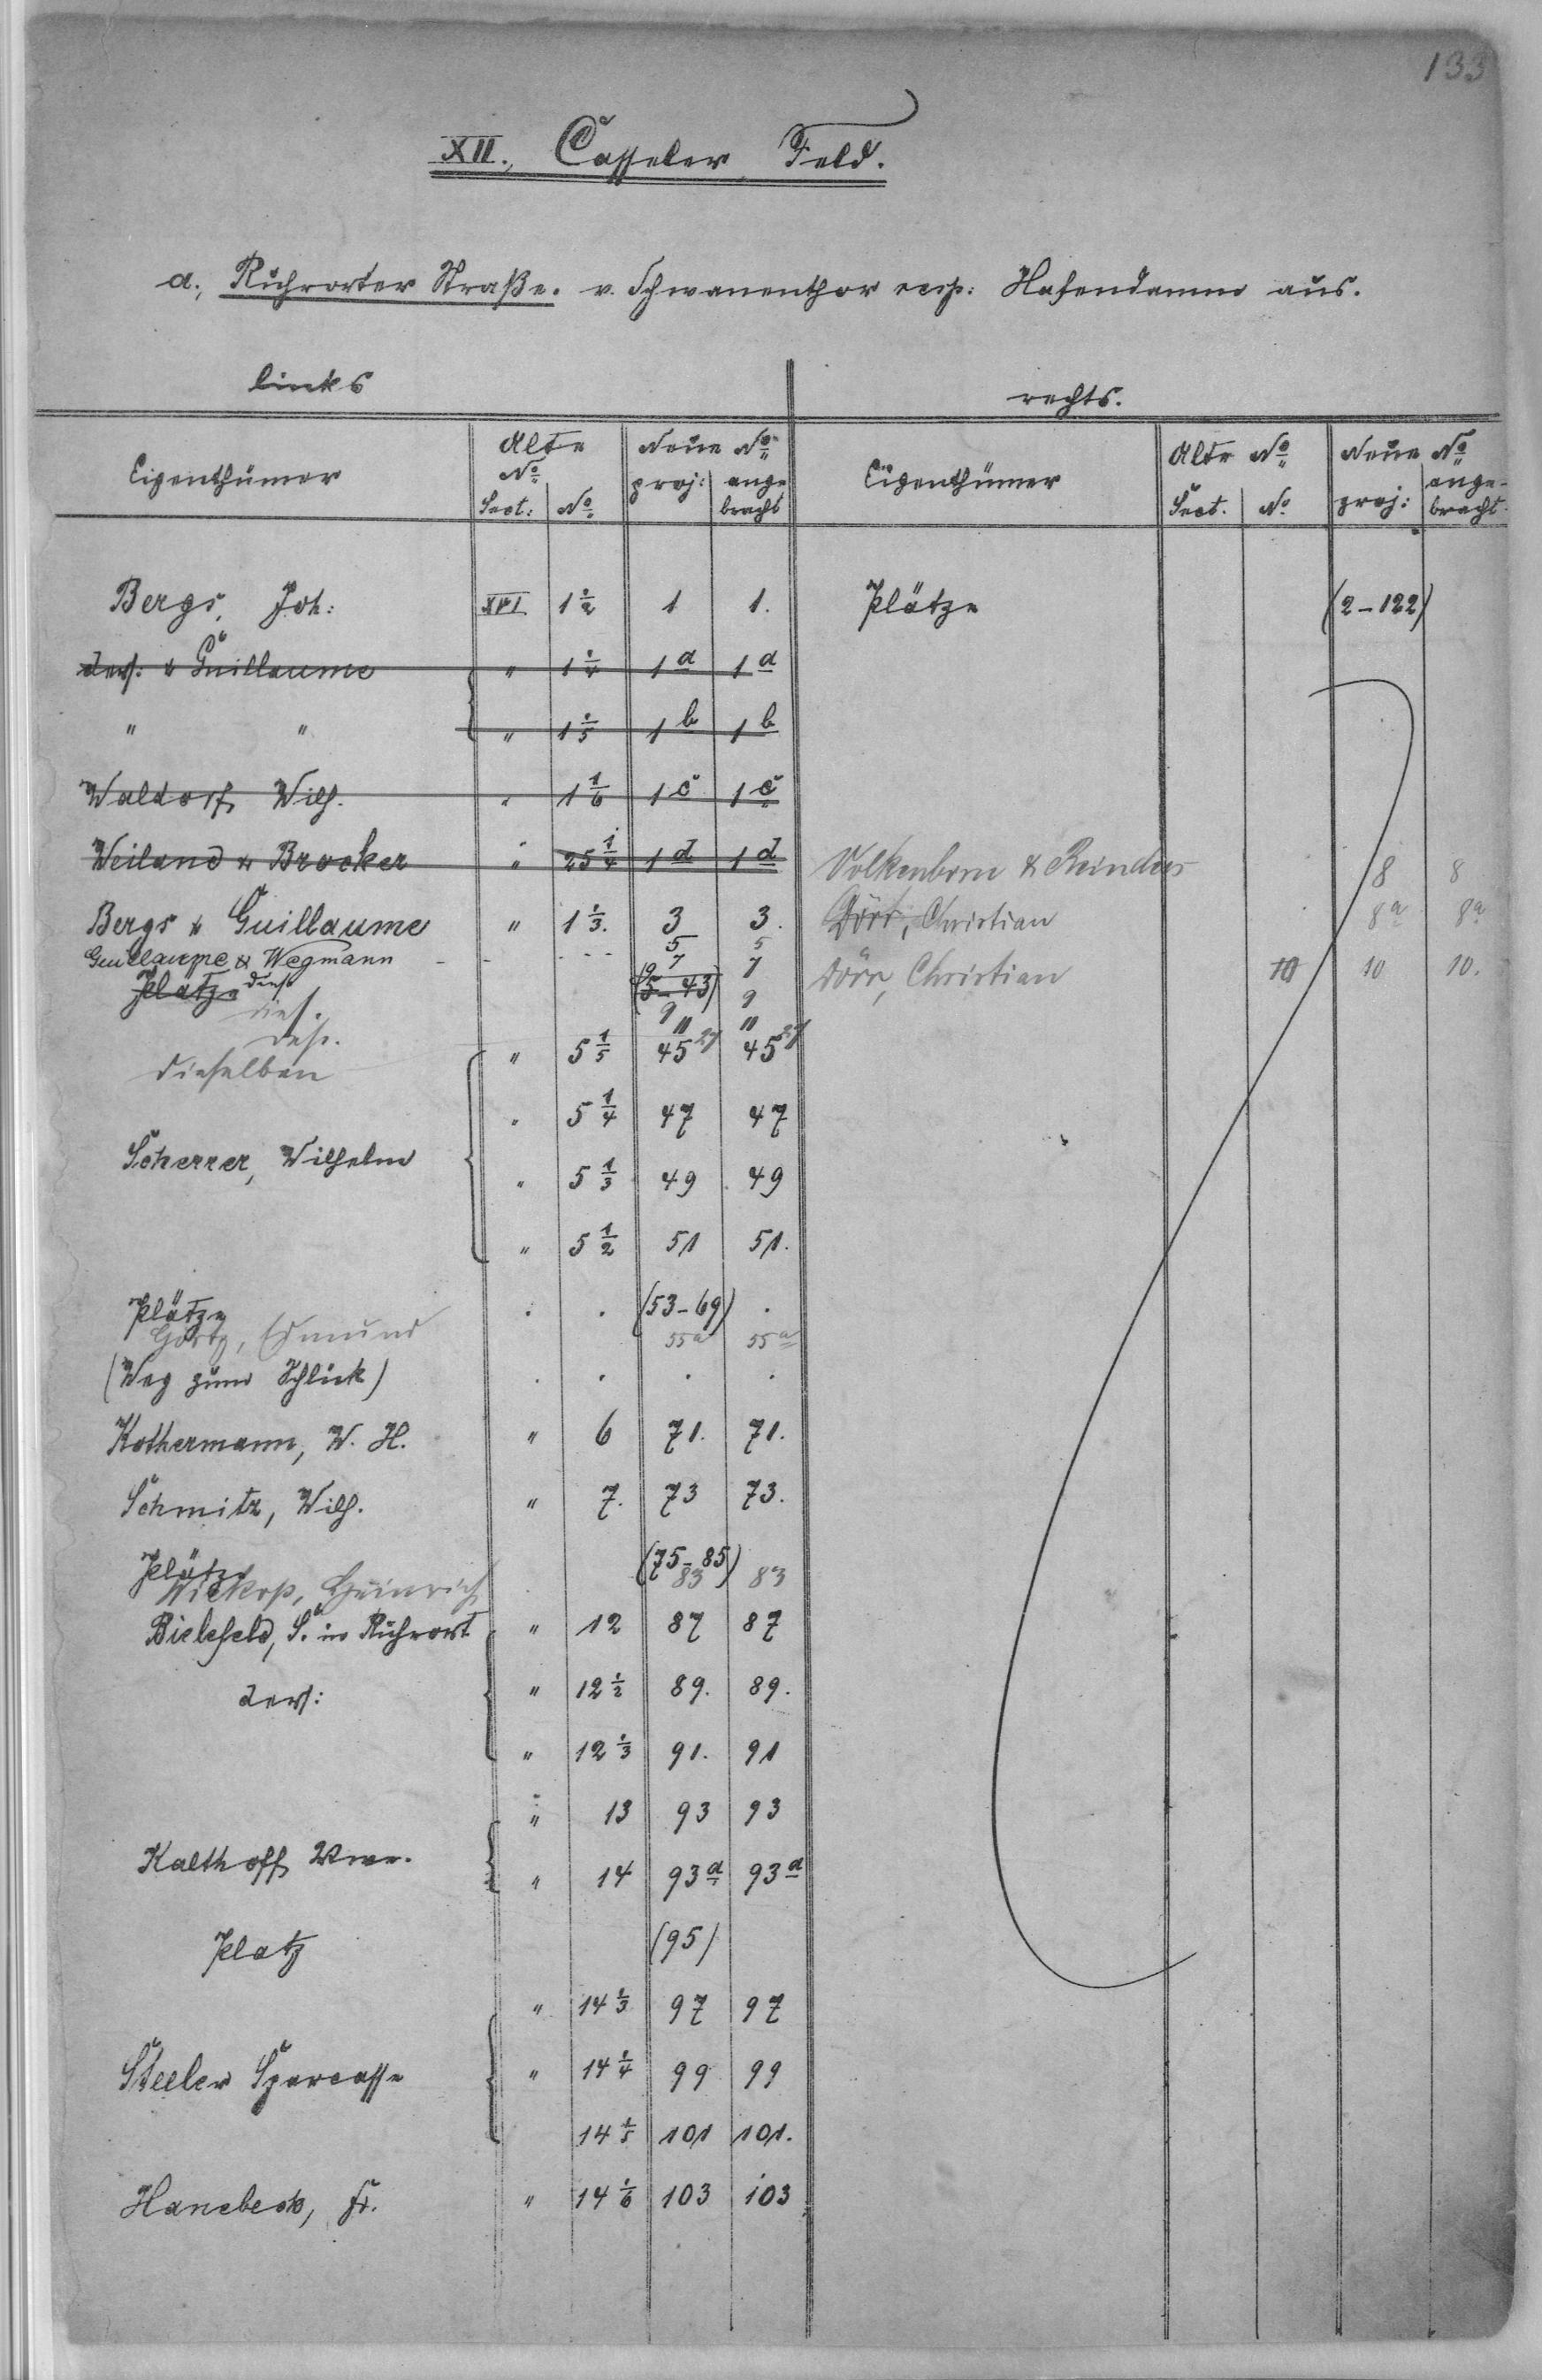 133
XII., Casseler Feld.
a., Ruhrorter Straße. v. Schwanenthor resp: Hafendamm aus.
links rechts.
Eigenthümer Alte No. Neue No. Eigenthümer Alte No. Neue No.
Sect: No. proj: angebracht Sect. No. proj: angebracht
Bergs, Joh: XVI 1 1/2 1 1. Plätze (2-122)
ders: & Guillaume " 1 1/4 1a 1a
" " " 1 1/5 1b 1b
Waldorf, Wilh. " 1 1/6 1c 1c
Weiland & Brocker " 25 1/4 1d 1d Volkenborn & Reinders 8 8
Bergs & Guillaume " 1 1/3. 3 3. Dörr, Christian 8a 8a
Guillaume & Wegmann 5 5
Plätze dies. (5-43) 7 7 Dörr, Christian 10 10 10.
dies. 9 9
des. 11 11
dieselben " 5 1/5 45 27 45 27
" 5 1/4 47 47
Scherrer, Wilhelm " 5 1/3 49 49
" 5 1/2 51 51.
Plätze (53-69)
Görtz, Edmund 55a 55a
(Weg zum Schlick)
Kothermann, W. H. " 6 71. 71.
Schmitz, Wilh. " 7. 73 73.
Plätze (75-85)
Wiekop, Heinrich 83 83
Bielefeld, S. in Ruhrort " 12 87 87
ders: " 12 1/2 89. 89.
" 12 1/3 91. 91
" 13 93 93
Kalthoff Wwe. " 14 93a 93a
Platz (95)
" 14 1/3 97 97
Steeler Sparcasse " 14 1/4 99 99
14 1/5 101 101.
Hanebeck, Fr. " 14 1/6 103 103